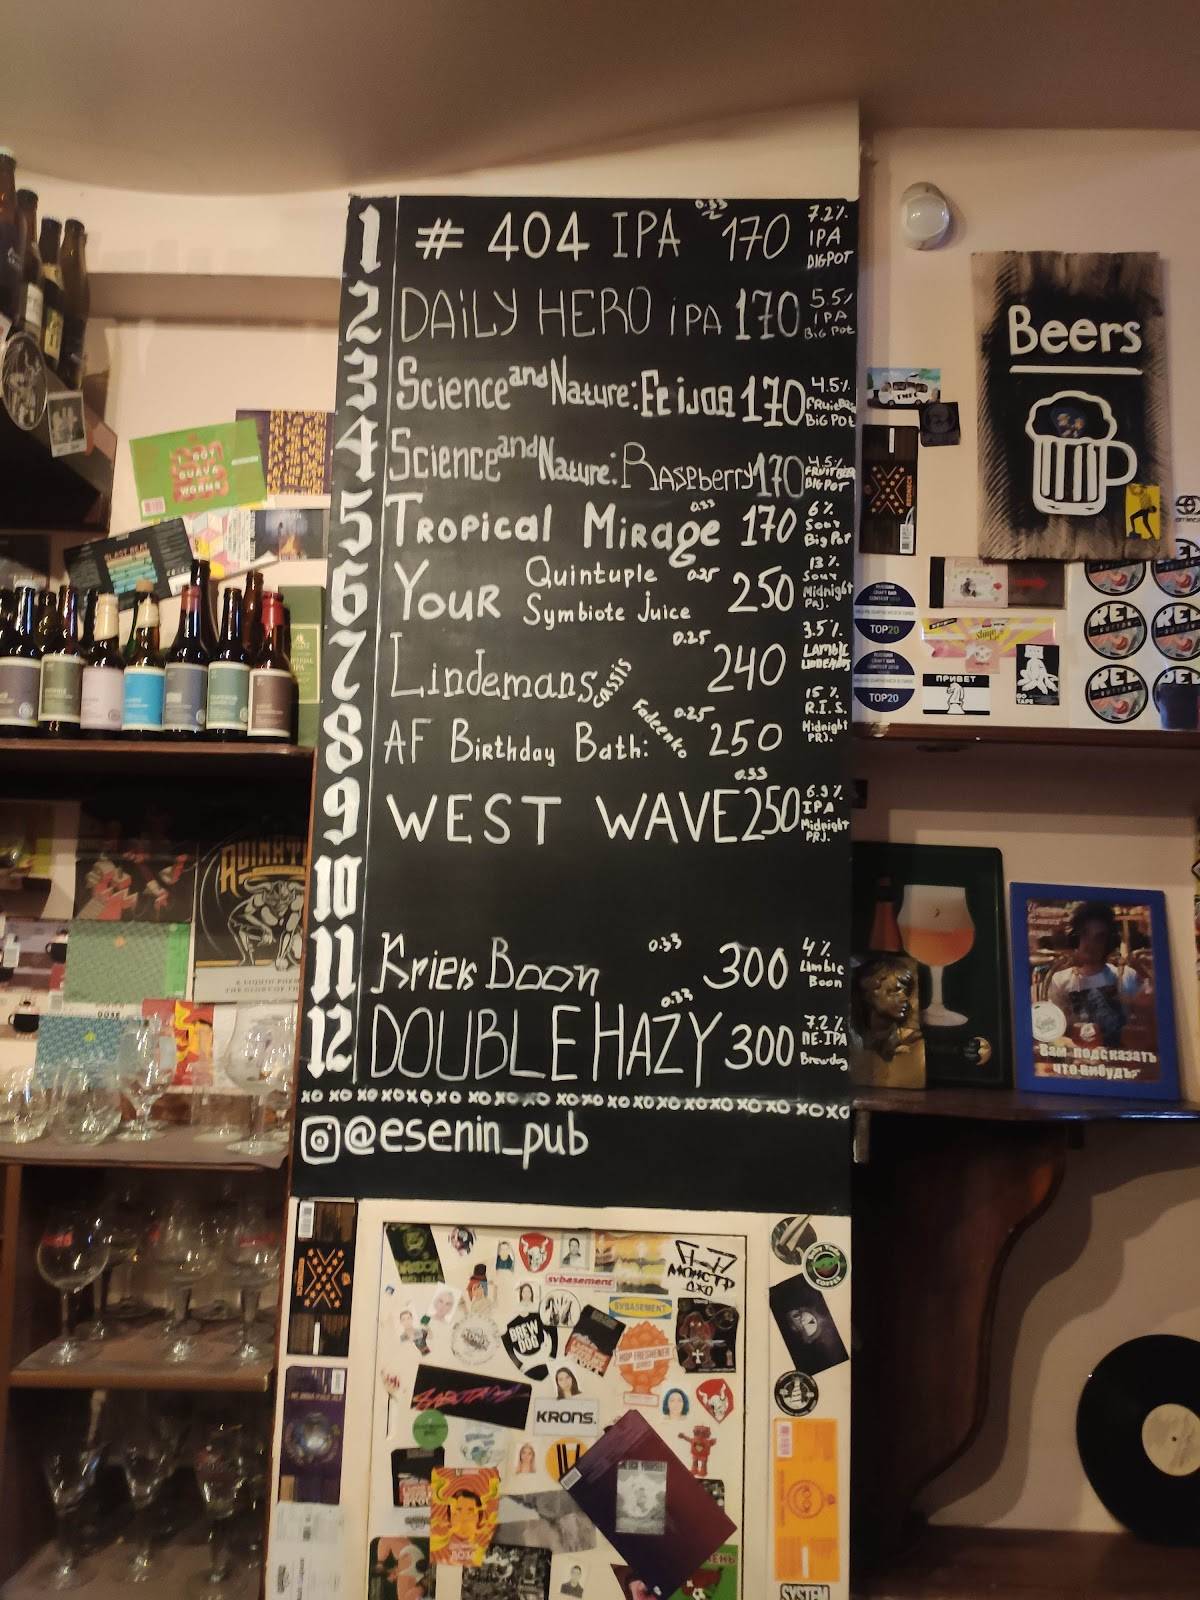 1 # 404 IPA 170 7.2% IPA BIGPOT
2 DAiLY HERO iPA 170 5.5% iPA BiG Pot
3 Science and Nature: 170 4.5% BiG POt
4 Science and Nature: RAspberry 170 4.5% FRUIT BEER BIG POT
5 TRopical Mirage 0.33 170 6% Sour Big Pot
6 YouR Quintuple Symbiote Juice 0.25 250 13% Sour Midnight PRJ.
7 Lindemans Cassis 0.25 240 3.5% LAMbic Lindemans
8 AF Birthday Bath: Fadeenko 0.25 250 15% R.I.S. Midnight PRJ.
9 WEST WAVE 0.33 250 6.9% IPA Midnight PRJ.
10
11 Kriek Boon 0.33 300 4% Lambic Boon
12 DOUBLE HAZY 0.33 300 7.2% NE.IPA Brewdog
xo xo xo xo xo xo xo xo xo xo xo xo xo xo xo xo xo xo xoxo
@esenin_pub
Beers
GOY
GUAVA
WORMS
TOP20
TOP20
ПРИВЕТ
RED
BUTTON
Вам подсказать
что-нибудь?
МОНСТР
ДЖО
svbasement
SVBASEMENT
BREW
DOG
HOP FRESHENER
KRONS.
COFFEE
SYSTEM